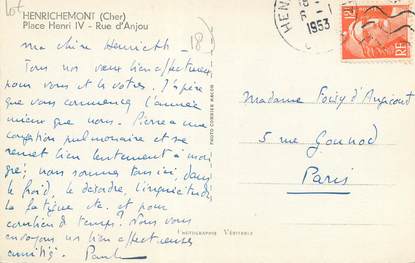 lot
HENRICHEMONT (Cher)
Place Henri IV - Rue d'Anjou
(18)
ma chère Henriette
Tous nos vœux bien affectueux
pour vous et les vôtres. J'espère
que vous commencez l'année
mieux que nous. Pierre a une
congestion pulmonaire et se
remet bien lentement à mon
gré; nous sommes ici, dans
le froid, le désordre, l'inquiétude
la fatigue etc. et pour
combien de temps? Nous vous
envoyons nos bien affectueuses
amitiés.
PHOTO CORSIER
PHOTOGRAPHIE VÉRITABLE
HEN
6 - 1
1953
12F
RF
Madame
5 rue Gounod
Paris